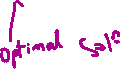 optimal solⁿ